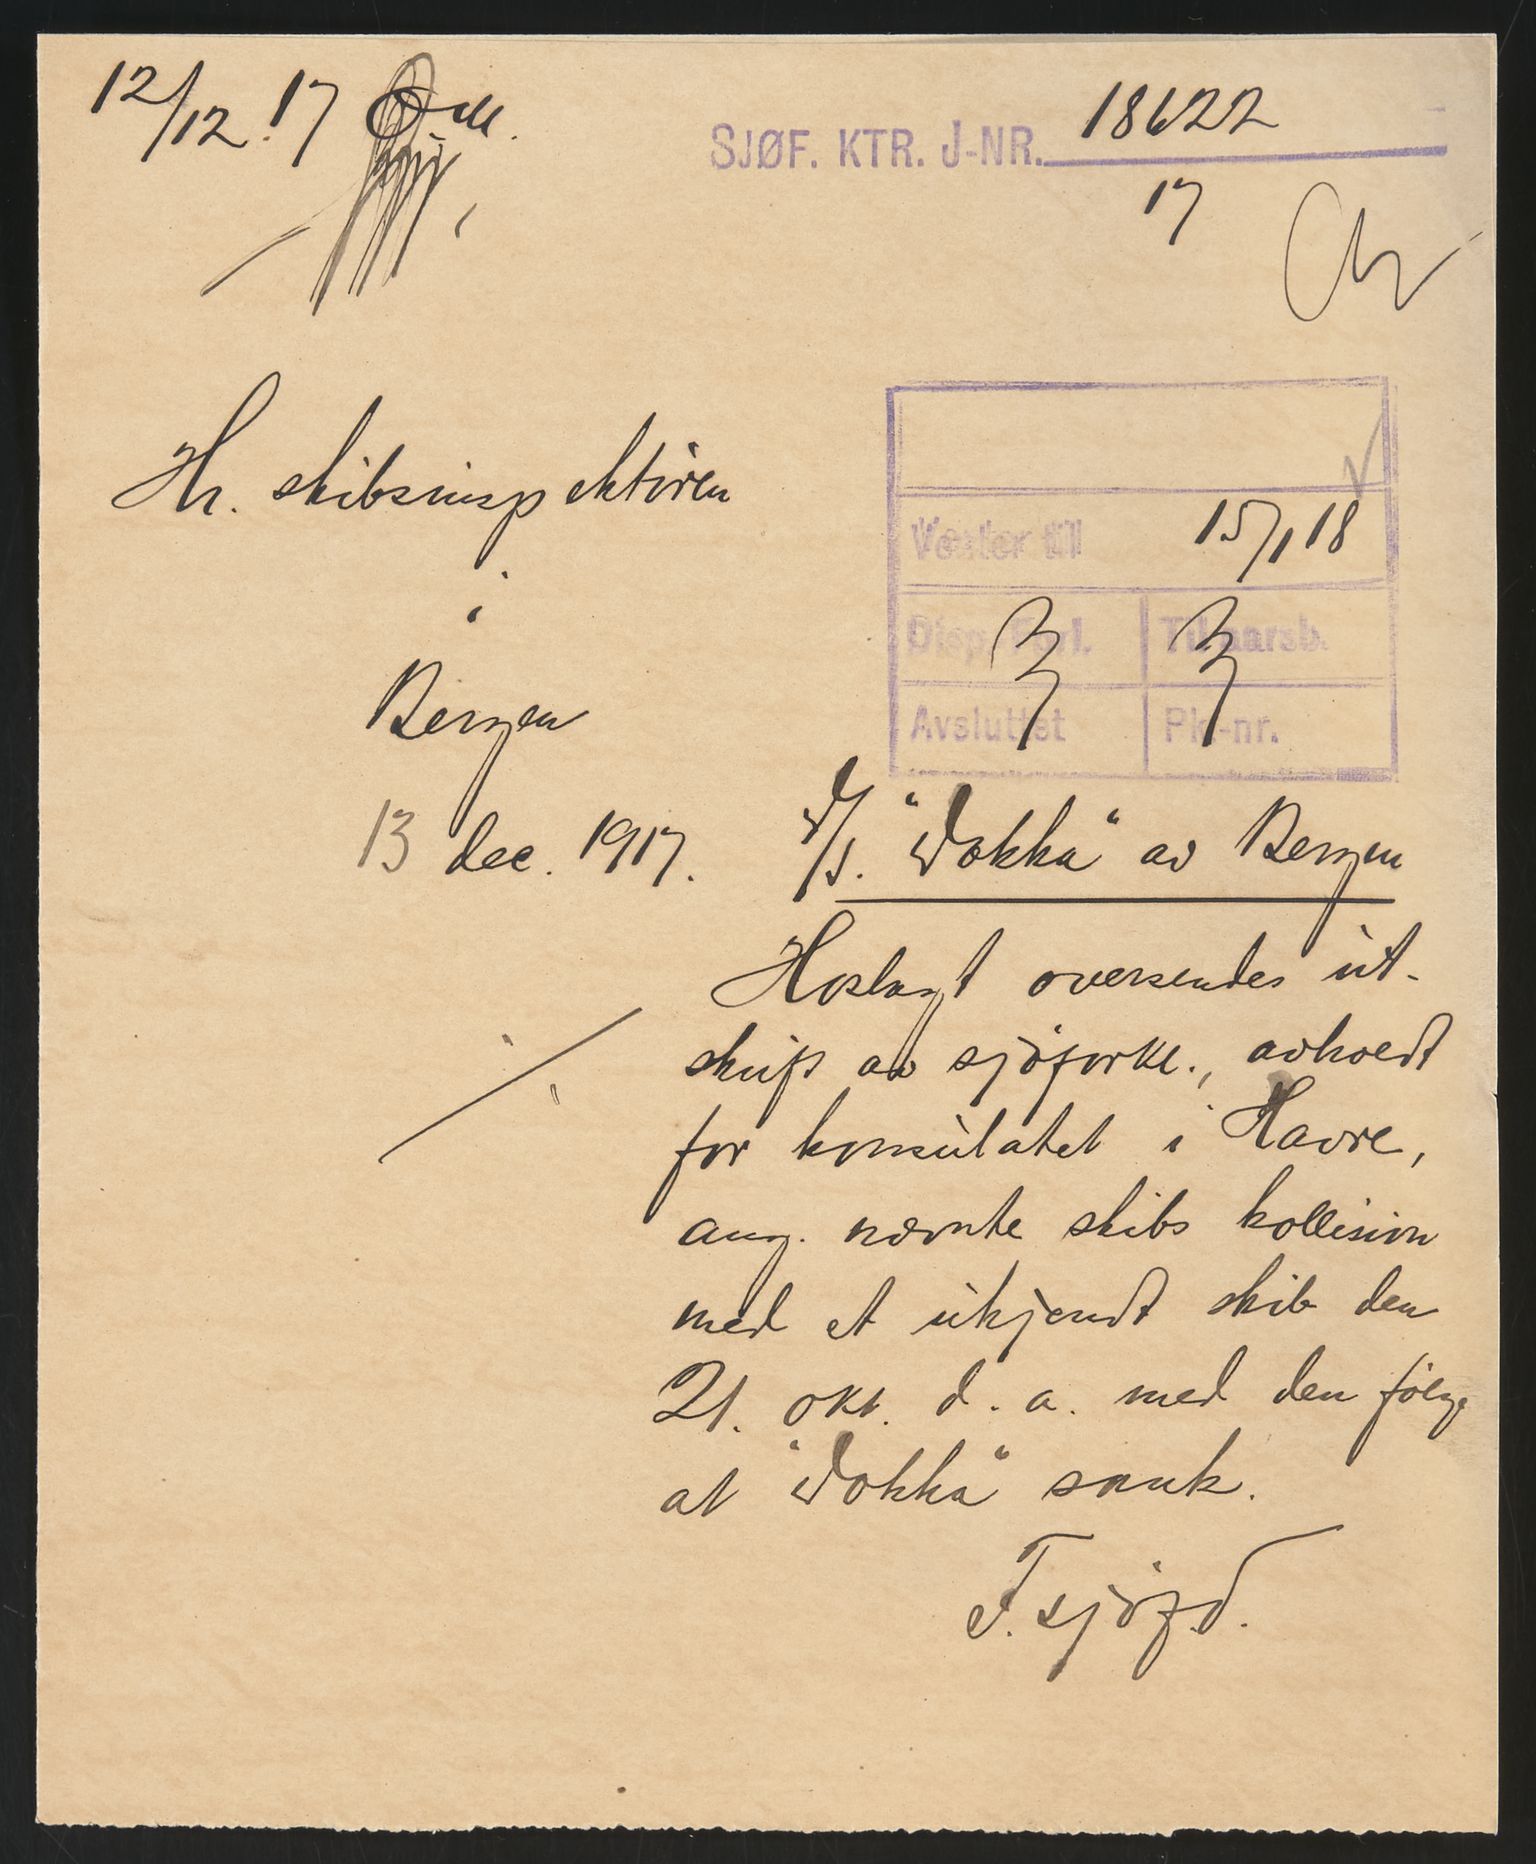 12/12. 17
SJØF. KTR. J-NR. 18622
17
Hr. skibsinspektören
i
Bergen
Venter til 15/1 18
Disp. Forl. Til aarsb.
Avsluttet Pk-nr.
13 dec. 1917.
D/S. "Dokka" av Bergen
Hoslagt oversendes út-
skrift av sjöforkl., avholdt
for konsúlatet i Havre,
ang. nævnte skibs kollision
med et úkjendt skib den
21. okt. d. a. med den følge
at "Dokka" sank.
F. sjöf.d.